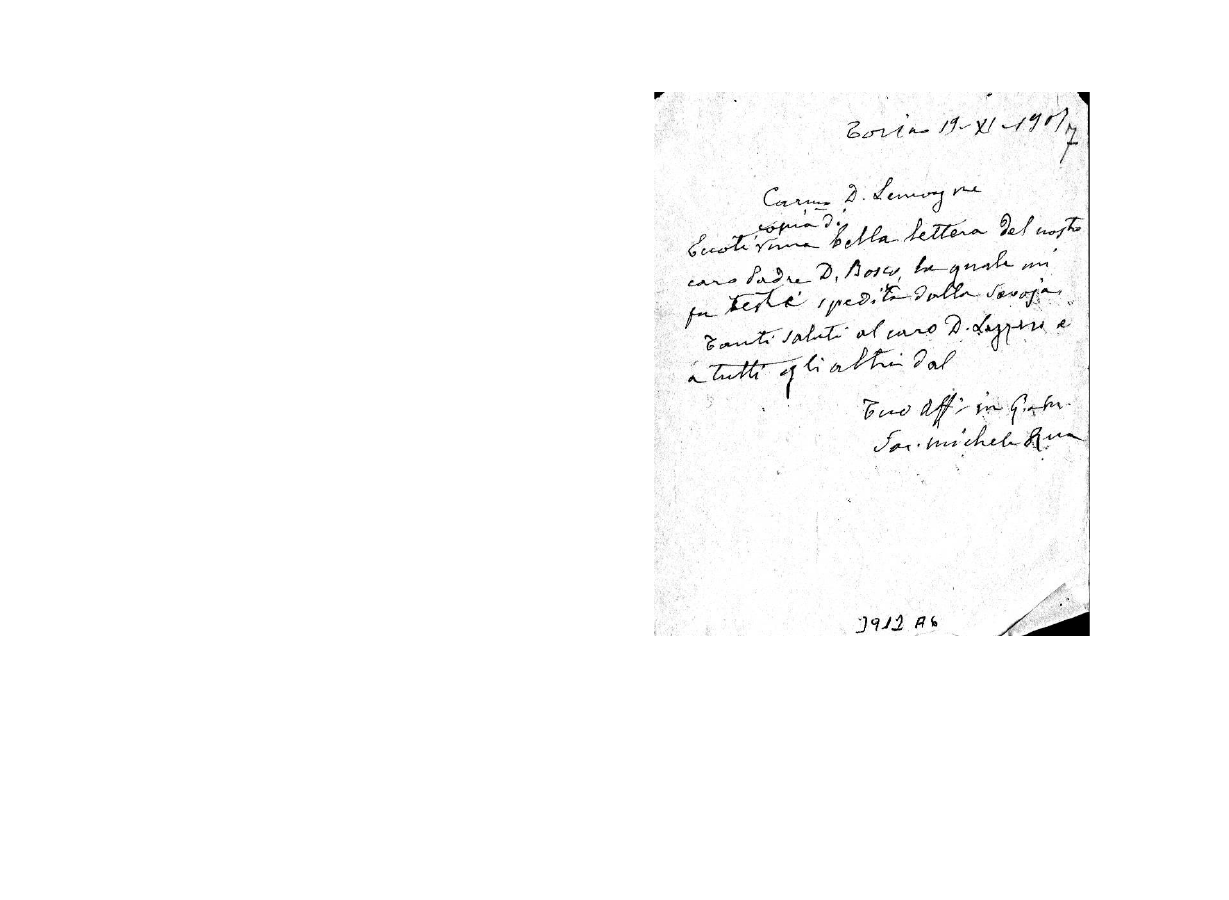 Torino 19-XI-1907
Carmo D. Lemoyne
copia di
Eccoti una bella lettera del nostro
caro Padre D. Bosco, la quale mi
fu testé spedita dalla Savoja.
Tanti saluti al caro D. Lazzero e
a tutti gli altri dal
Tuo aff. in G. e M.
Sac. Michele Rua
3912 A6